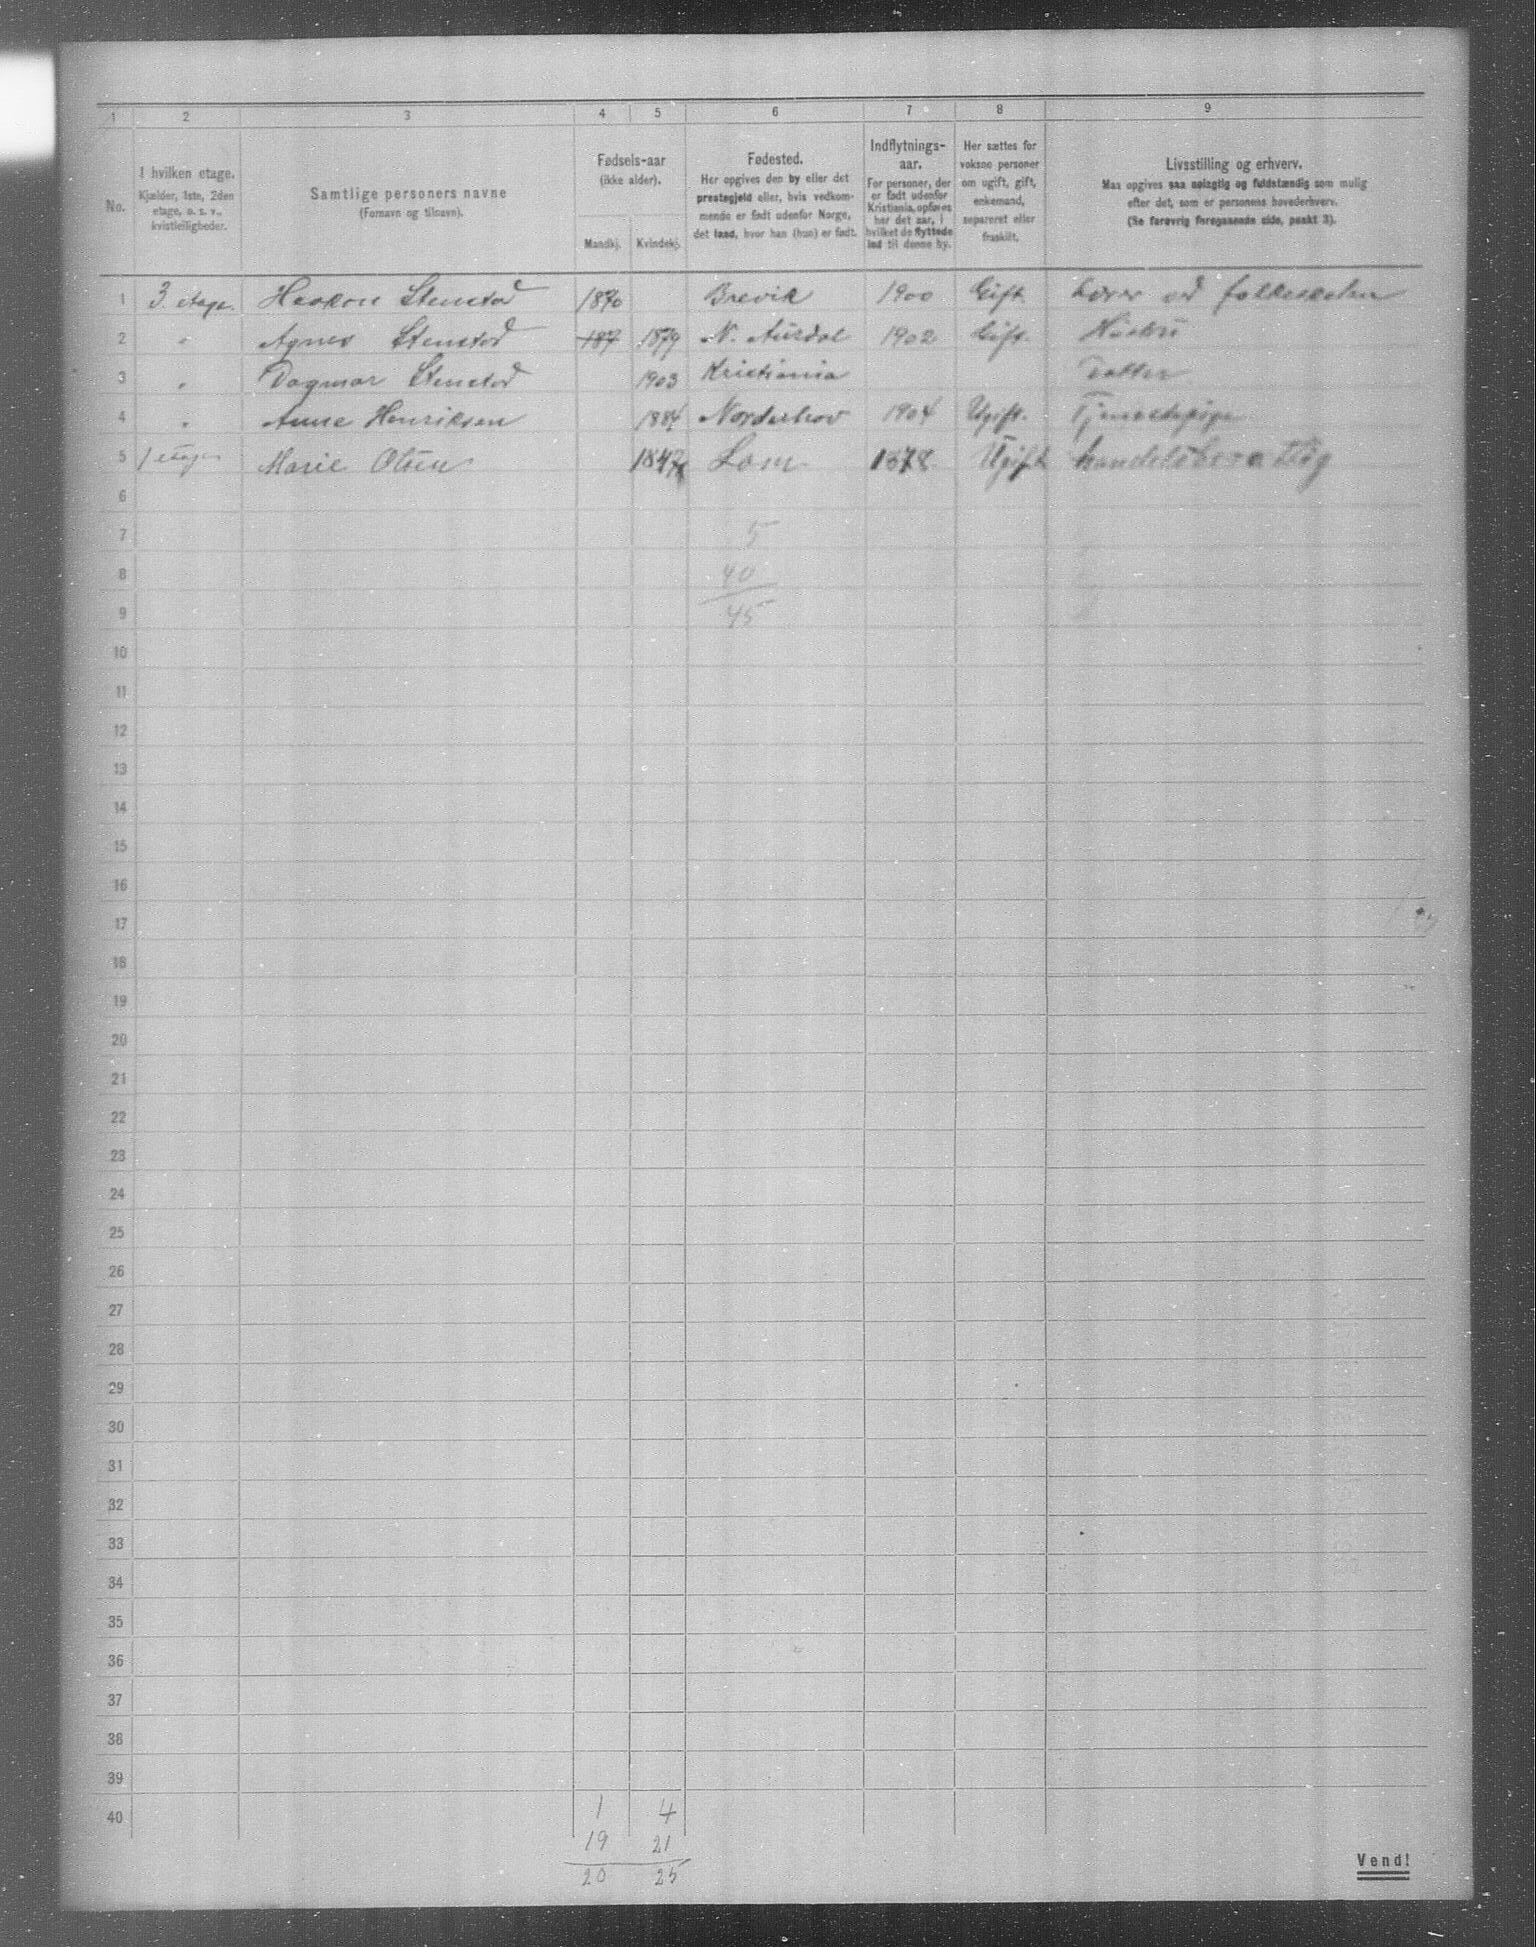 1 2 3 4 5 6 7 8 9
No.
I hvilken etage.
Kjælder, 1ste, 2den
etage, o. s. v.,
kvistleiligheder.
Samtlige personers navne
(Fornavn og tilnavn).
Fødsels-aar
(ikke alder).
Mandkj. Kvindekj.
Fødested.
Her opgives den by eller det
prestegjeld eller, hvis vedkom-
mende er født udenfor Norge,
det land, hvor han (hun) er født.
Indflytnings-
aar.
For personer, der
er født udenfor
Kristiania, opføres
her det aar, i
hvilket de flyttede
ind til denne by.
Her sættes for
voksne personer
om ugift, gift,
enkemand,
separeret eller
fraskilt.
Livsstilling og erhverv.
Maa opgives saa nøiagtig og fuldstændig som mulig
efter det, som er personens hovederhverv.
(Se forøvrig foregaaende side, punkt 3).
1 3. etage. Haakon Stenstod 1870 Brevik 1900 Gift Lærer ved folkeskolen
2 " Agnes Stenstod 187 1879 N. Aurdal 1902 Gift. Hustru
3 " Dagmar Stenstod 1903 Kristiania Datter
4 " Anne Henriksen 1884 Norderhov 1904 Ugift. Tjenestepige
5 1 etage Marie Olsen 1847 Lom 1878 Ugift
6
7 5
8 40
9 45
10
11
12
13
14
15
16
17
18
19
20
21
22
23
24
25
26
27
28
29
30
31
32
33
34
35
36
37
38
39
40 1 4
19 21
20 25
Vend!